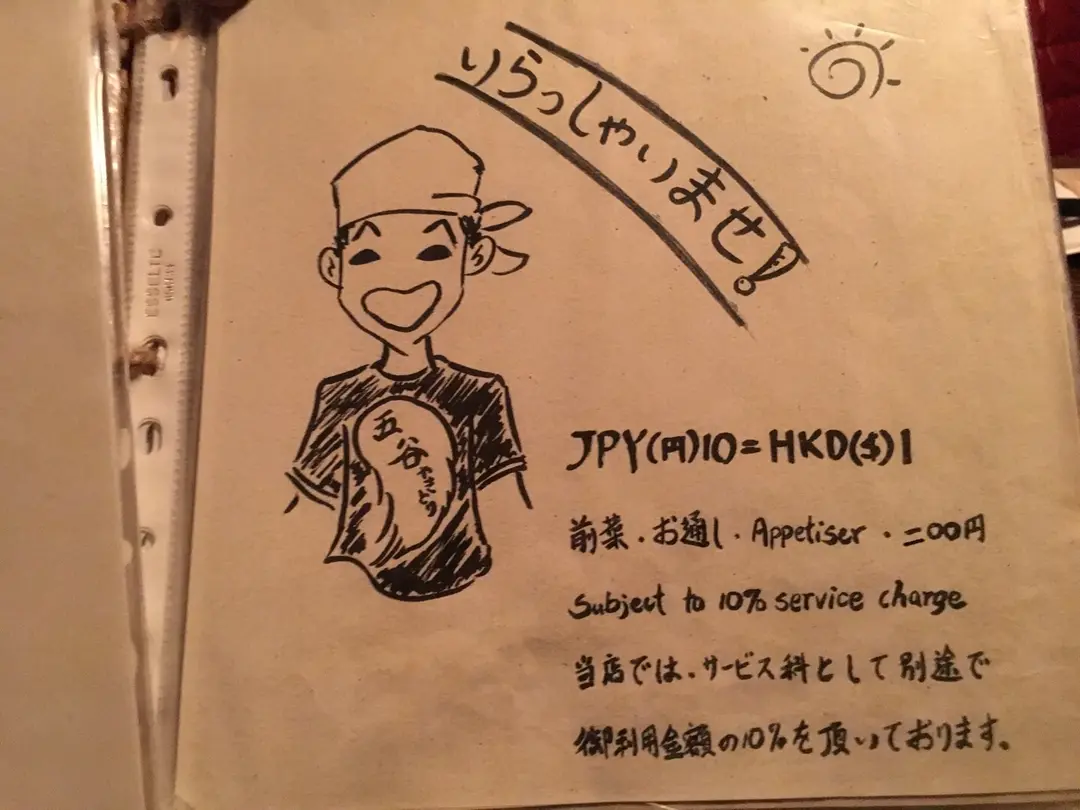 いらっしゃいませ!
五谷
やきとり
JPY(円)10=HKD($)1
前菜・お通し・Appetiser・二00円
Subject to 10% service charge
当店では、サービス料として別途で
御利用金額の10%を頂いております。
ESSELTE